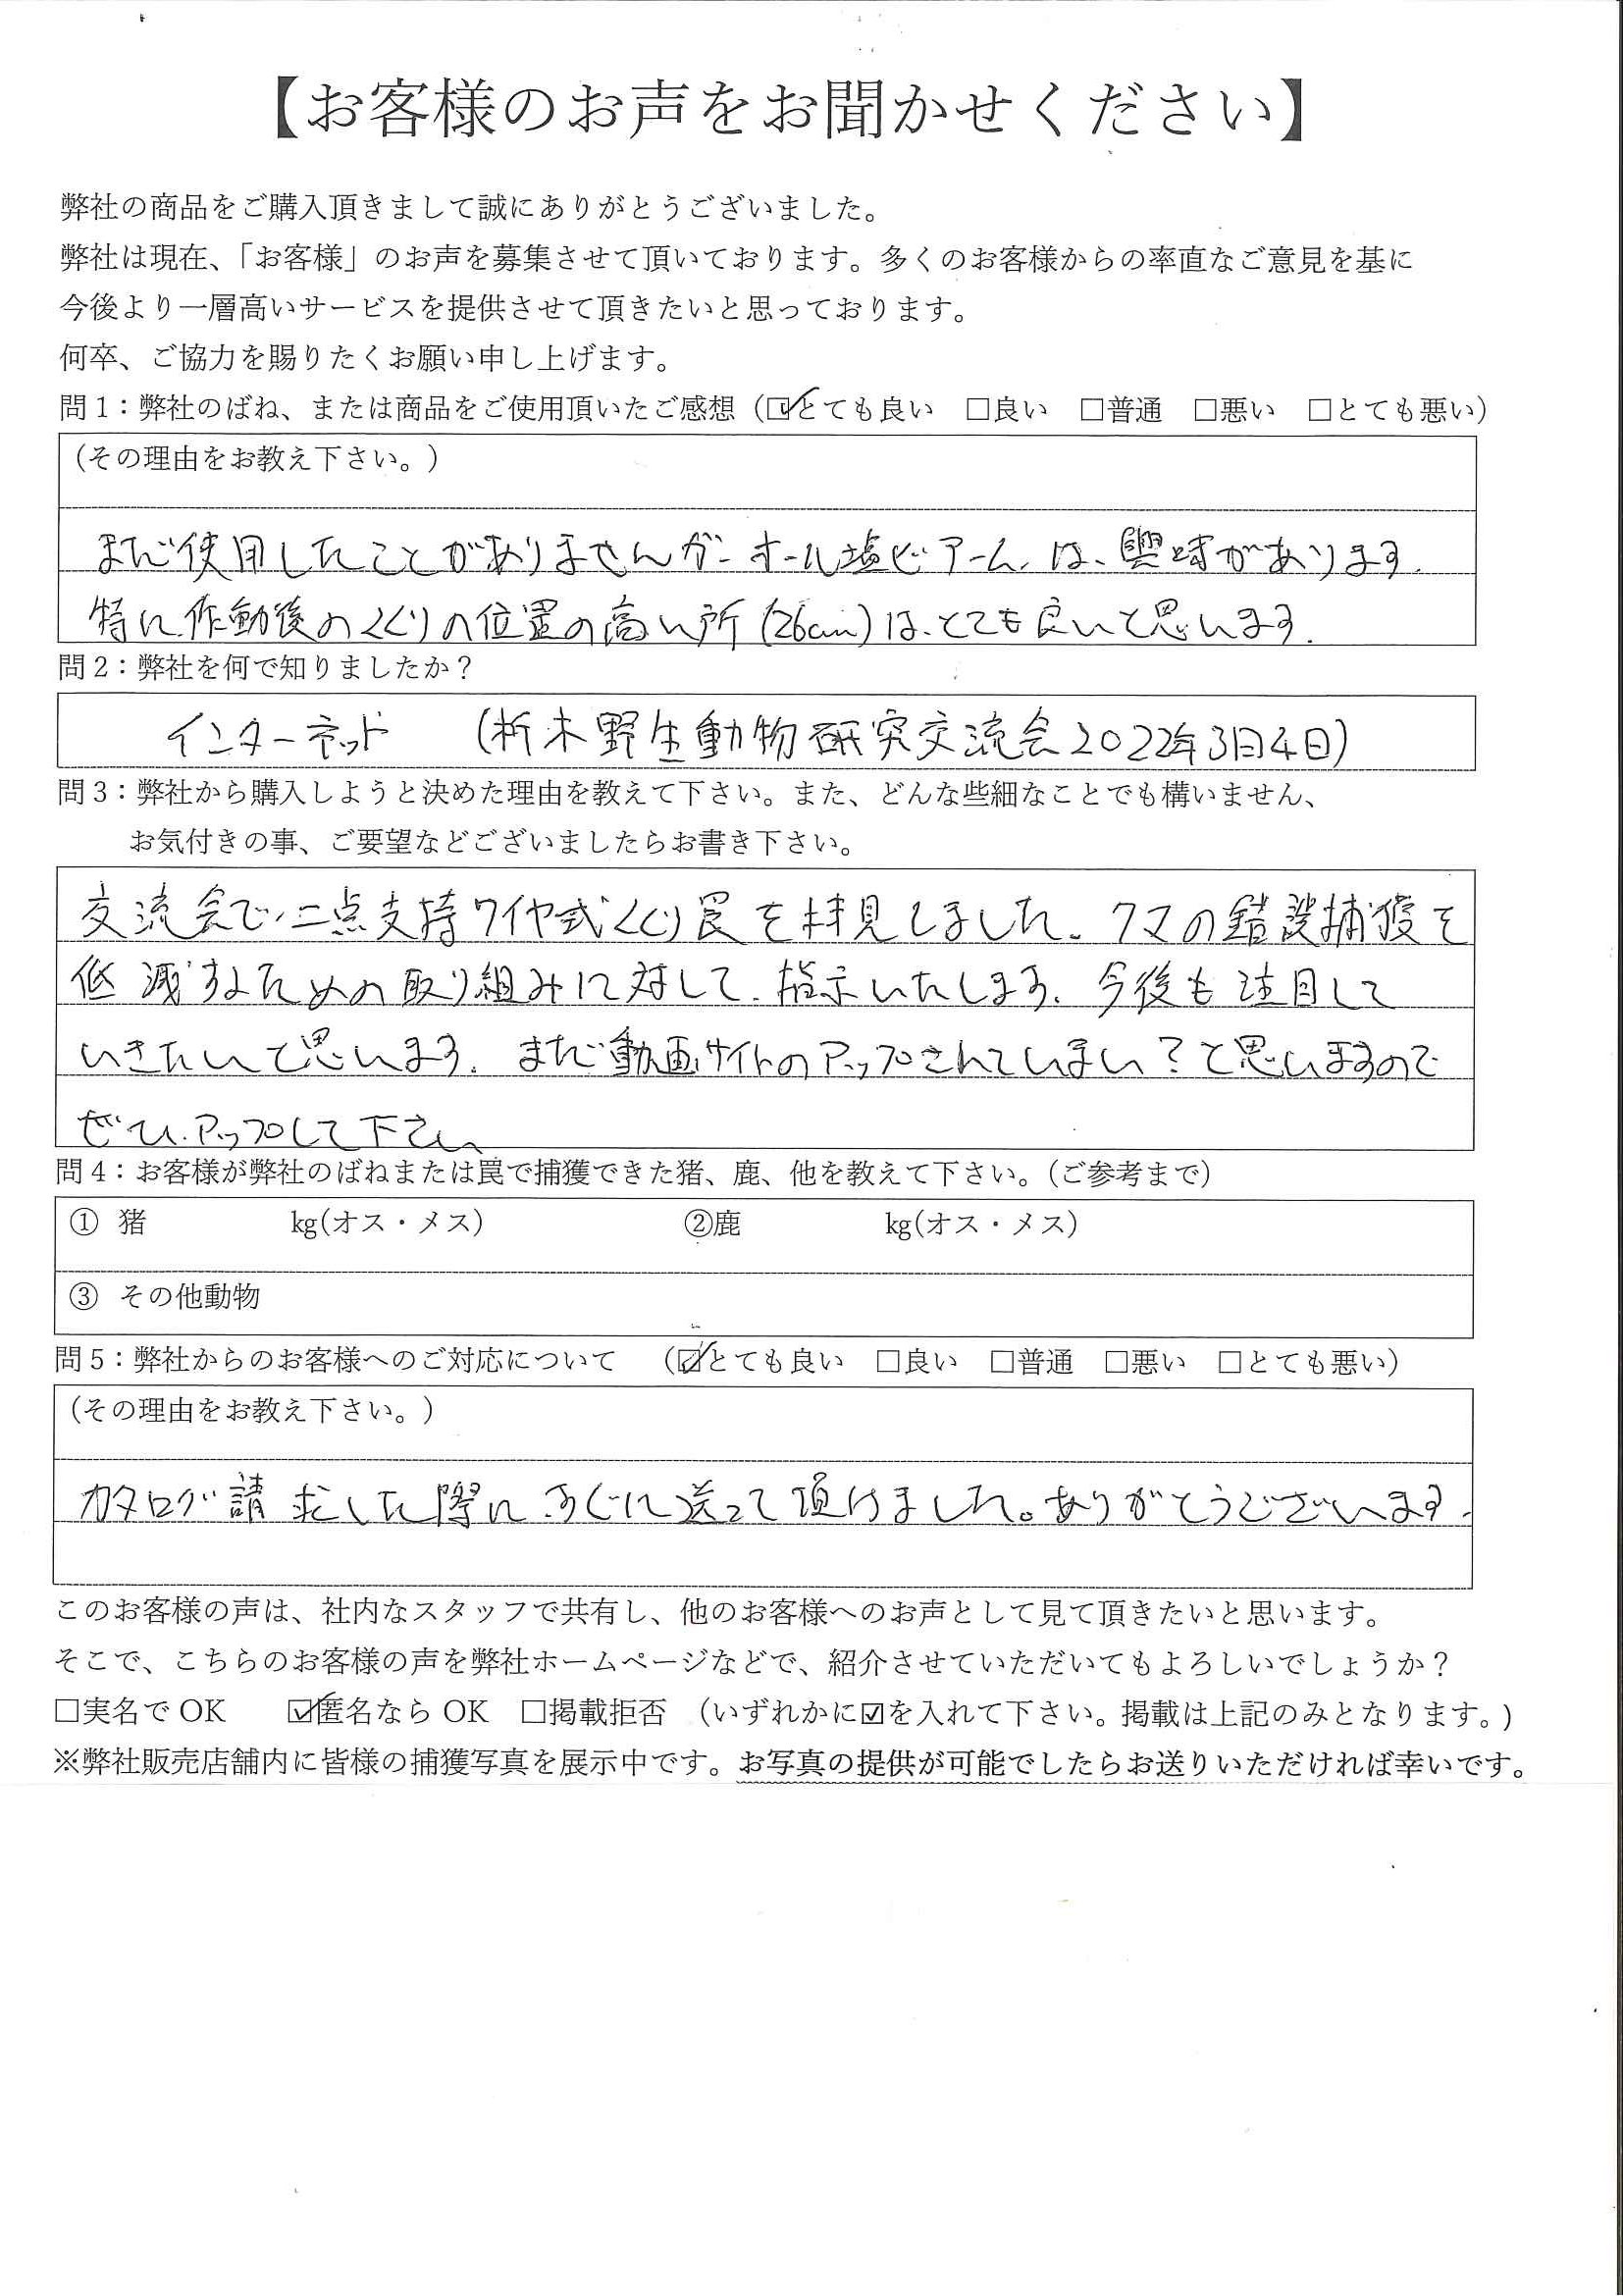 【お客様のお声をお聞かせください】
弊社の商品をご購入頂きまして誠にありがとうございました。
弊社は現在、「お客様」のお声を募集させて頂いております。多くのお客様からの率直なご意見を基に
今後より一層高いサービスを提供させて頂きたいと思っております。
何卒、ご協力を賜りたくお願い申し上げます。
問1：弊社のばね、または商品をご使用頂いたご感想（☑とても良い　□良い　□普通　□悪い　□とても悪い）
（その理由をお教え下さい。）
まだ使用したことがありませんが、オール塩ビアームは、興味があります。
特に作動後のくくりの位置の高い所(26cm)は、とても良いと思います。
問2：弊社を何で知りましたか？
インターネット　(栃木野生動物研究交流会2022年3月4日)
問3：弊社から購入しようと決めた理由を教えて下さい。また、どんな些細なことでも構いません、
お気付きの事、ご要望などございましたらお書き下さい。
交流会で、二点支持ワイヤ式くくり罠を拝見しました。クマの錯誤捕獲を
低減するための取り組みに対して、指示いたします。今後も注目して
いきたいと思います。まだ動画サイトのアップされていまい？と思いますので
ぜひ、アップして下さい
問4：お客様が弊社のばねまたは罠で捕獲できた猪、鹿、他を教えて下さい。（ご参考まで）
① 猪　　　kg(オス・メス)　　　②鹿　　　kg(オス・メス)
③ その他動物
問5：弊社からのお客様へのご対応について　（☑とても良い　□良い　□普通　□悪い　□とても悪い）
（その理由をお教え下さい。）
カタログ請求した際に、すぐに送って頂けました。ありがとうございます。
このお客様の声は、社内なスタッフで共有し、他のお客様へのお声として見て頂きたいと思います。
そこで、こちらのお客様の声を弊社ホームページなどで、紹介させていただいてもよろしいでしょうか？
□実名で OK　☑匿名なら OK　□掲載拒否　（いずれかに☑を入れて下さい。掲載は上記のみとなります。)
※弊社販売店舗内に皆様の捕獲写真を展示中です。お写真の提供が可能でしたらお送りいただければ幸いです。